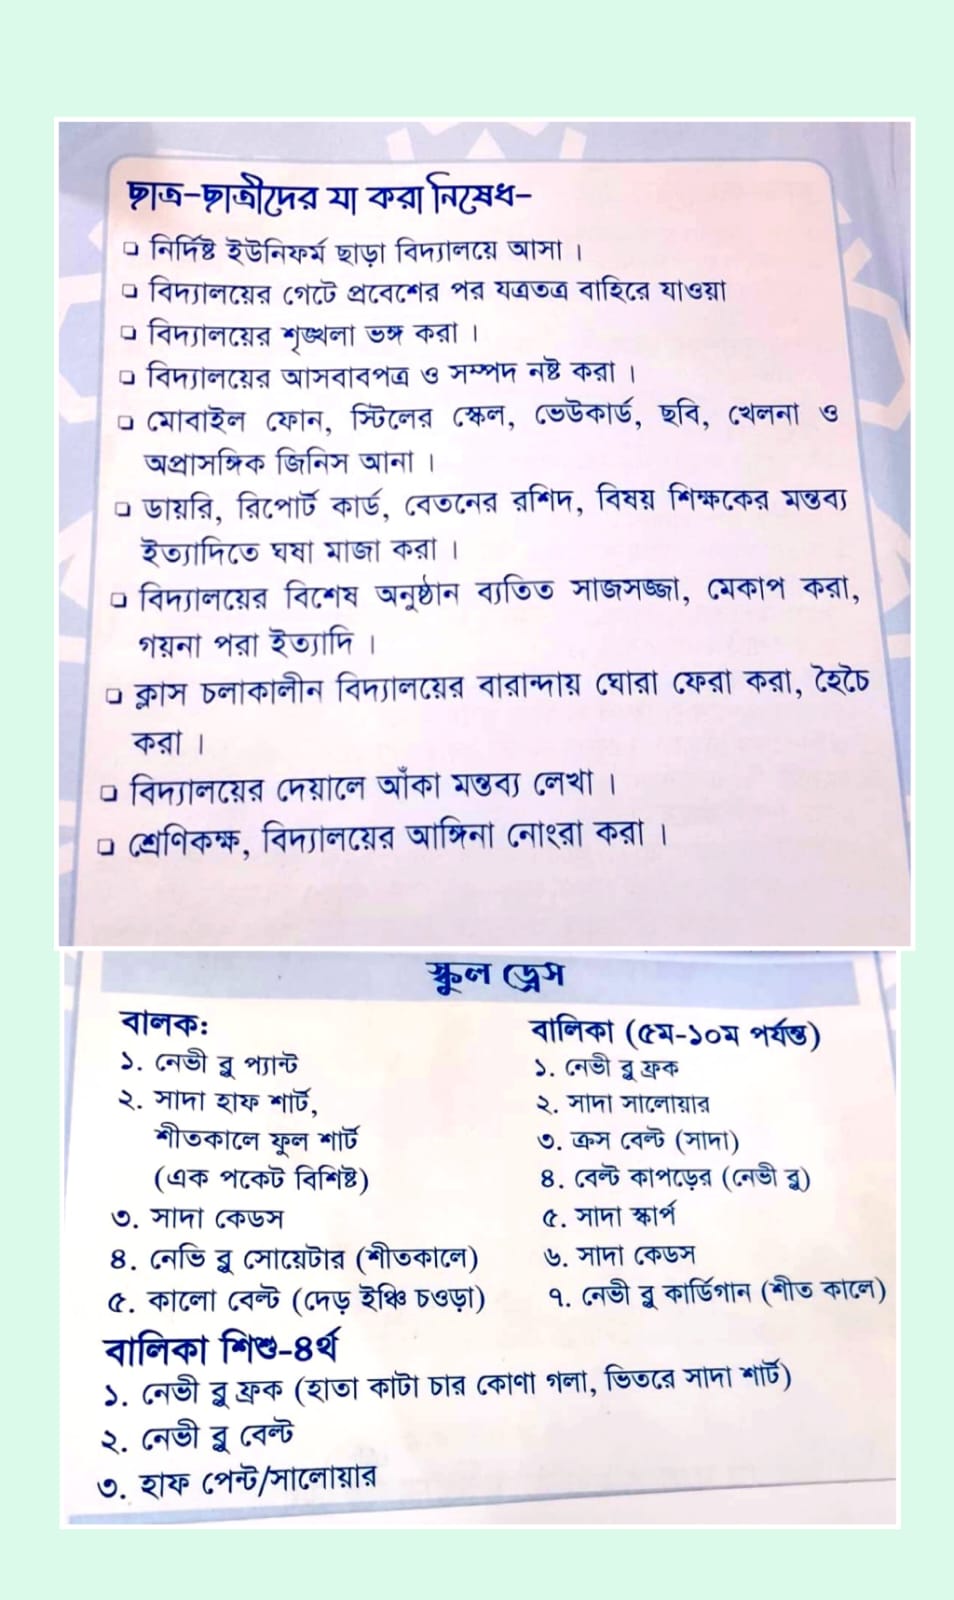 ছাত্র-ছাত্রীদের যা করা নিষেধ-
❑ নির্দিষ্ট ইউনিফর্ম ছাড়া বিদ্যালয়ে আসা ।
❑ বিদ্যালয়ের গেটে প্রবেশের পর যত্রতত্র বাহিরে যাওয়া
❑ বিদ্যালয়ের শৃঙ্খলা ভঙ্গ করা ।
❑ বিদ্যালয়ের আসবাবপত্র ও সম্পদ নষ্ট করা ।
❑ মোবাইল ফোন, স্টিলের স্কেল, ভেউকার্ড, ছবি, খেলনা ও
অপ্রাসঙ্গিক জিনিস আনা ।
❑ ডায়রি, রিপোর্ট কার্ড, বেতনের রশিদ, বিষয় শিক্ষকের মন্তব্য
ইত্যাদিতে ঘষা মাজা করা ।
❑ বিদ্যালয়ের বিশেষ অনুষ্ঠান ব্যতিত সাজসজ্জা, মেকাপ করা,
গয়না পরা ইত্যাদি ।
❑ ক্লাস চলাকালীন বিদ্যালয়ের বারান্দায় ঘোরা ফেরা করা, হৈচৈ
করা ।
❑ বিদ্যালয়ের দেয়ালে আঁকা মন্তব্য লেখা ।
❑ শ্রেণিকক্ষ, বিদ্যালয়ের আঙ্গিনা নোংরা করা ।
স্কুল ড্রেস
বালক:
১. নেভী ব্লু প্যান্ট
২. সাদা হাফ শার্ট,
শীতকালে ফুল শার্ট
(এক পকেট বিশিষ্ট)
৩. সাদা কেডস
৪. নেভি ব্লু সোয়েটার (শীতকালে)
৫. কালো বেল্ট (দেড় ইঞ্চি চওড়া)
বালিকা (৫ম-১০ম পর্যন্ত)
১. নেভী ব্লু ফ্রক
২. সাদা সালোয়ার
৩. ক্রস বেল্ট (সাদা)
৪. বেল্ট কাপড়ের (নেভী ব্লু)
৫. সাদা স্কার্প
৬. সাদা কেডস
৭. নেভী ব্লু কার্ডিগান (শীত কালে)
বালিকা শিশু-৪র্থ
১. নেভী ব্লু ফ্রক (হাতা কাটা চার কোণা গলা, ভিতরে সাদা শার্ট)
২. নেভী ব্লু বেল্ট
৩. হাফ পেন্ট/সালোয়ার